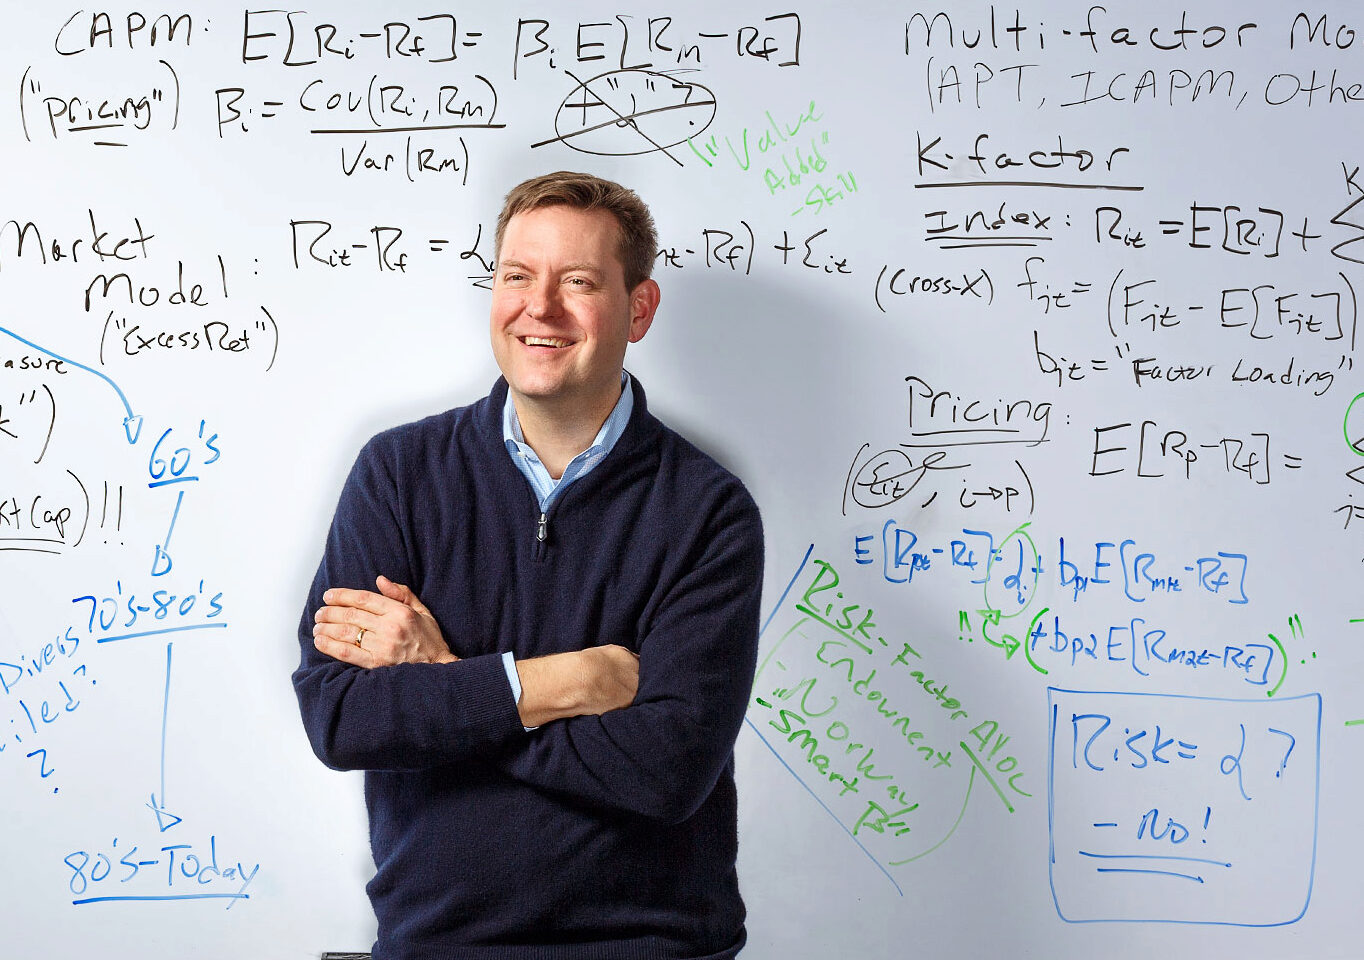 CAPM: E[Ri-Rf]= βi E[Rm-Rf]
("pricing") βi = Cov(Ri, Rm)
Var(Rm)
+ "α" ?
("Value
Added"
-Skill
Market
Model :
("ExcessRet")
Rit-Rf = α
-Rf) + εit
60's
70's-80's
Divers
?
80's-Today
Multi-factor Mo
(APT, ICAPM, Othe
K-factor
Index : Rit = E[Ri] +
(Cross-X) fjt = (Fjt - E[Fjt]
bjt = "Factor Loading"
Pricing :
(εit, i→p)
E[Rp-Rf] =
E[Rpt-Rf]= αi + bp1E[Rm1t-Rf]
!! (+bp2 E[Rm2t-Rf])"!.
Risk-Factor Alloc
-Endowment
-"Norway"
-"Smart β"
Risk= α ?
- No!